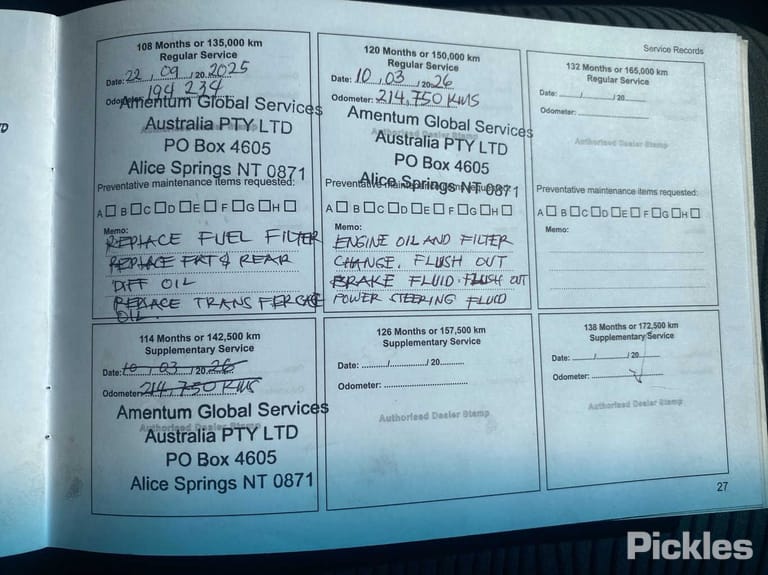 Service Records
108 Months or 135,000 km
Regular Service
Date: 22 / 09 / 20 2025
Odometer: 194 234
Amentum Global Services
Australia PTY LTD
Authorised Dealer Stamp
PO Box 4605
Alice Springs NT 0871
Preventative maintenance items requested:
A B C D E F G H
Memo:
REPLACE FUEL FILTER
REPLACE FRT & REAR
DIFF OIL
REPLACE TRANSFERCASE
OIL.
120 Months or 150,000 km
Regular Service
Date: 10 / 03 / 20 26
Odometer: 214,750 KMS
Amentum Global Services
Authorised Dealer Stamp
Australia PTY LTD
PO Box 4605
Alice Springs NT 0871
Preventative maintenance items requested:
A B C D E F G H
Memo:
ENGINE OIL AND FILTER
CHANGE. FLUSH OUT
BRAKE FLUID. FLUSH OUT
POWER STEERING FLUID
132 Months or 165,000 km
Regular Service
Date: / / 20
Odometer:
Authorised Dealer Stamp
Preventative maintenance items requested:
A B C D E F G H
Memo:
114 Months or 142,500 km
Supplementary Service
Date: 10 / 03 / 20 26
Odometer: 214,750 KMS
Amentum Global Services
Authorised Dealer Stamp
Australia PTY LTD
PO Box 4605
Alice Springs NT 0871
126 Months or 157,500 km
Supplementary Service
Date: / / 20
Odometer:
Authorised Dealer Stamp
138 Months or 172,500 km
Supplementary Service
Date: / / 20
Odometer:
Authorised Dealer Stamp
27
Pickles